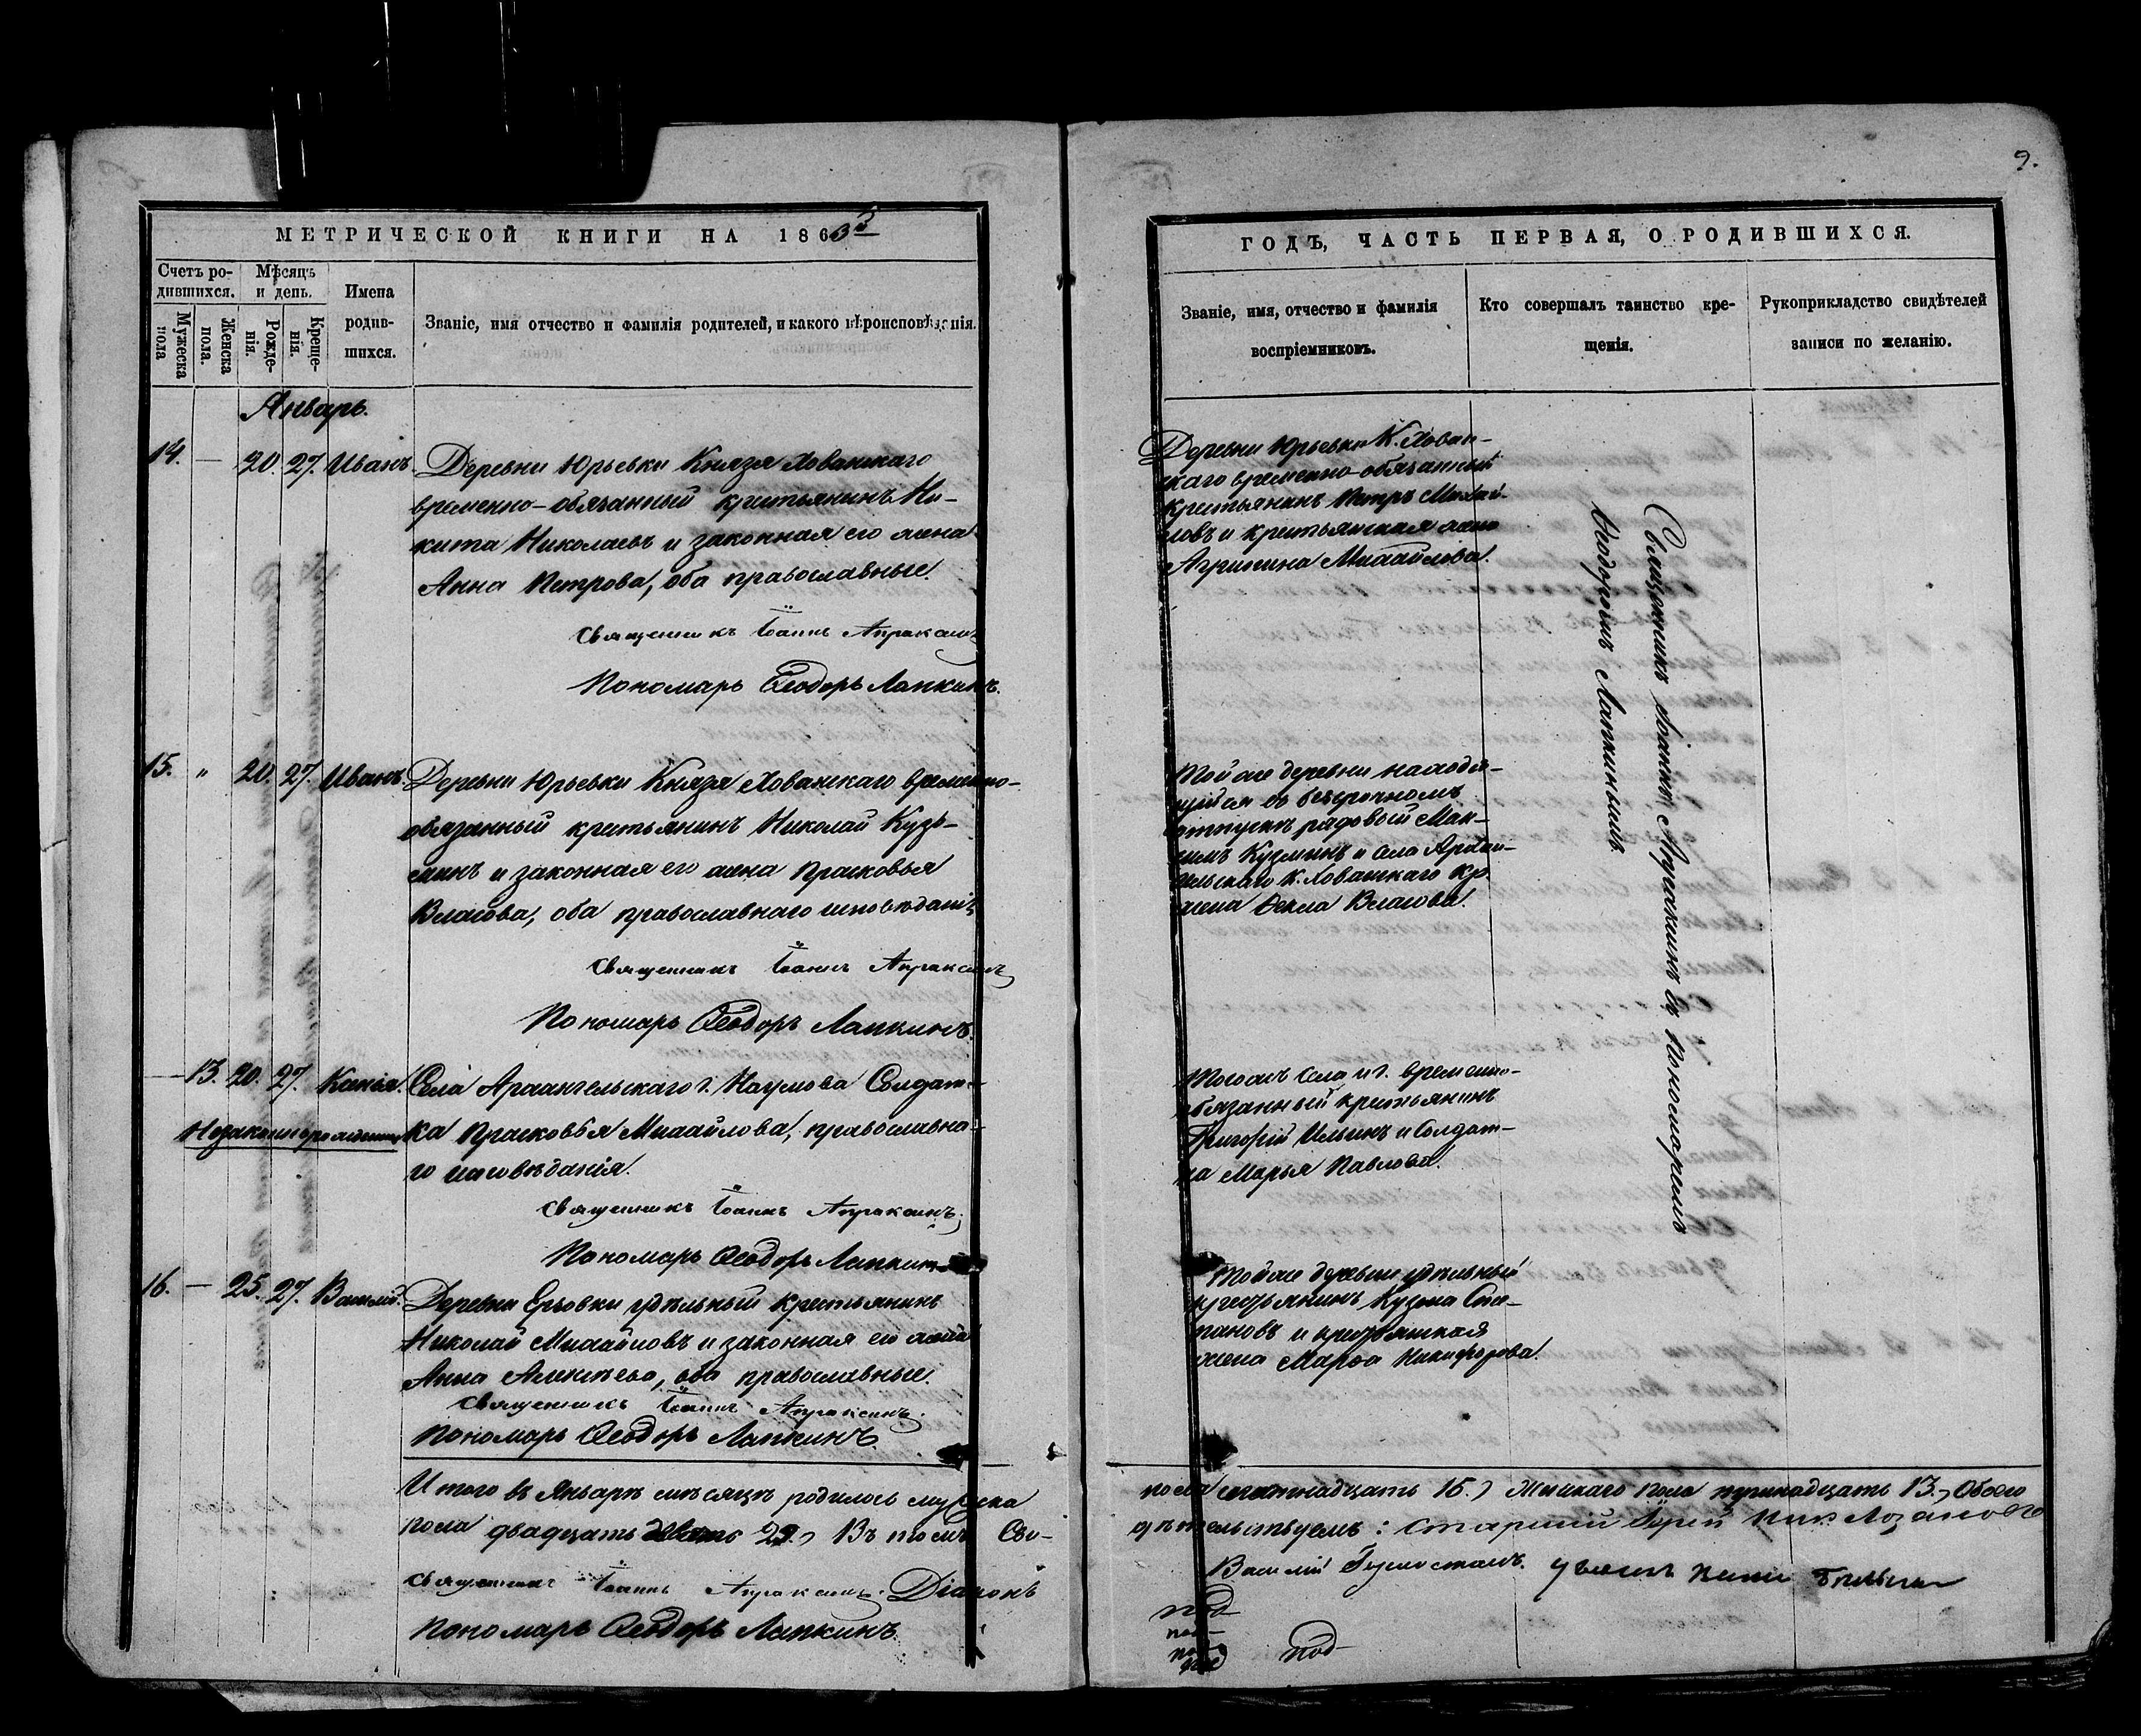 9.
МЕТРИЧЕСКОЙ КНИГИ НА 1863й
Счетъ ро-
дившихся.
Мѣсяцъ
и день.
Имена
родив-
шихся.
Званіе, имя отчество и фамилія родителей, и какого вѣроисповѣданія.
Мужеска
пола
Женска
пола.
Рожде-
нія.
Креще-
нія.
Январь.
14. — 20. 27. Иванъ. Деревни Юрьевки Князя Хованскаго
временно-обязанный крестьянинъ Ни-
кита Николаевъ и законная его жена
Анна Петрова, оба православные.
Священникъ Іоаннъ Апраксинъ
Пономарь Ѳеодоръ Лапкинъ.
15. " 20. 27. Иванъ. Деревни Юрьевки Князя Хованскаго временно-
обязанный крестьянинъ Николай Кузь-
минъ и законная его жена Прасковья
Власова, оба православнаго исповѣданія
Священникъ Іоаннъ Апраксинъ
Пономарь Ѳеодоръ Лапкинъ.
— 13. 20. 27. Села Архангельскаго г. Наумова Солдат-
Незаконнорожденная
ка Прасковья Михайлова, православна-
го исповѣданія.
Священникъ Іоаннъ Апраксинъ.
Пономарь Ѳеодоръ Лапкинъ
16. — 25. 27. Василій. Деревни удѣльный крестьянинъ
Николай Михайловъ и законная его жена
Анна Алексѣева, оба православные.
Священникъ Іоаннъ Апраксинъ.
Пономарь Ѳеодоръ Лапкинъ.
Итого въ Январѣ мѣсяцѣ родилось мужска
пола двадцать девять 29. Въ томъ Сви-
Священникъ Іоаннъ Апраксинъ. Діаконъ
Пономарь Ѳеодоръ Лапкинъ.
ГОДЪ, ЧАСТЬ ПЕРВАЯ, О РОДИВШИХСЯ.
Званіе, имя, отчество и фамилія
воспріемниковъ.
Кто совершалъ таинство кре-
щенія.
Рукоприкладство свидѣтелей
записи по желанію.
Деревни Юрьевки К. Хован-
скаго временно-обязанный
крестьянинъ Петръ Михай-
ловъ и крестьянская жена
Агрипина Михайлова.
Той же деревни находя-
щійся въ безсрочномъ
отпускѣ рядовой Мак-
симъ Кузминъ и села Архан-
гельскаго К. Хованскаго кр.
жена Ѳекла Власова.
Тогожъ села и г. временно-
обязанный крестьянинъ
Григорій Ильинъ и Солдат-
ка Марья Павлова.
Той же деревни удѣльный
крестьянинъ Кузма Сте-
пановъ и крестьянская
жена Марѳа Никифорова.
Священникъ Іоаннъ Апраксинъ съ пономаремъ
Ѳеодоромъ Лапкинымъ
пола 16. Женскаго пола тринадцать 13. Обоего
дѣтельствуемъ: Старшій Іерей
Василій
под
под